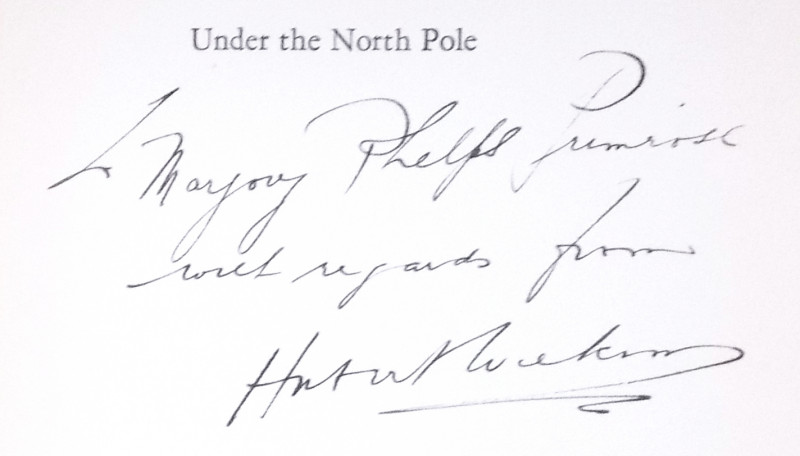 Under the North Pole
To Marjory Phelps Primrose
with regards from
Hubert Wilkins